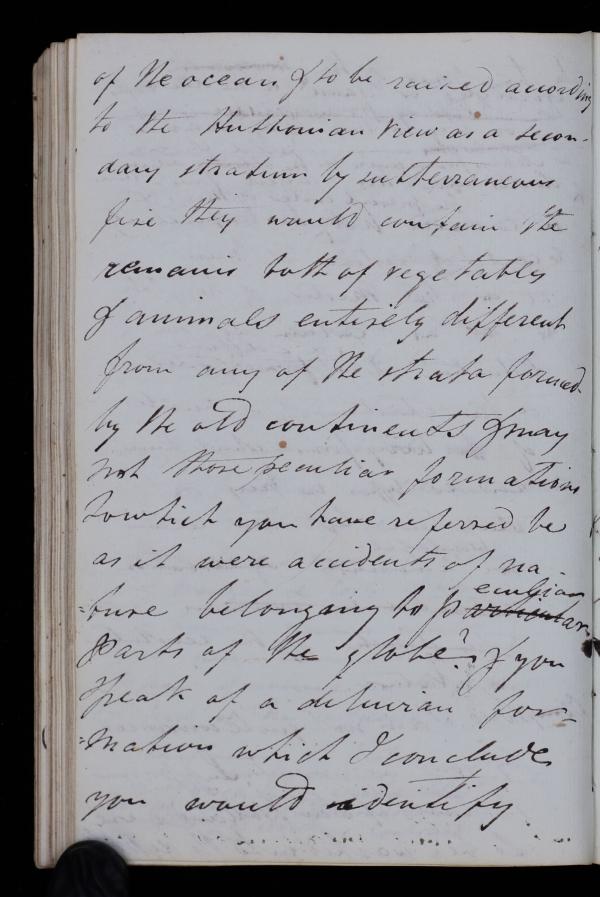 of the ocean & to be raised according
to the Huttonian view as a secon-
dary stratum by subterraneous
fire they would contain the
remains both of vegetables
& animals entirely different
from any of the strata formed
by the old continents & may
not those peculiar formations
to which you have referred be
as it were accidents of na-
eculiar
=ture belonging to particular
parts of the globe? If you
speak of a diluvian for-
=mation which I conclude
you would identify